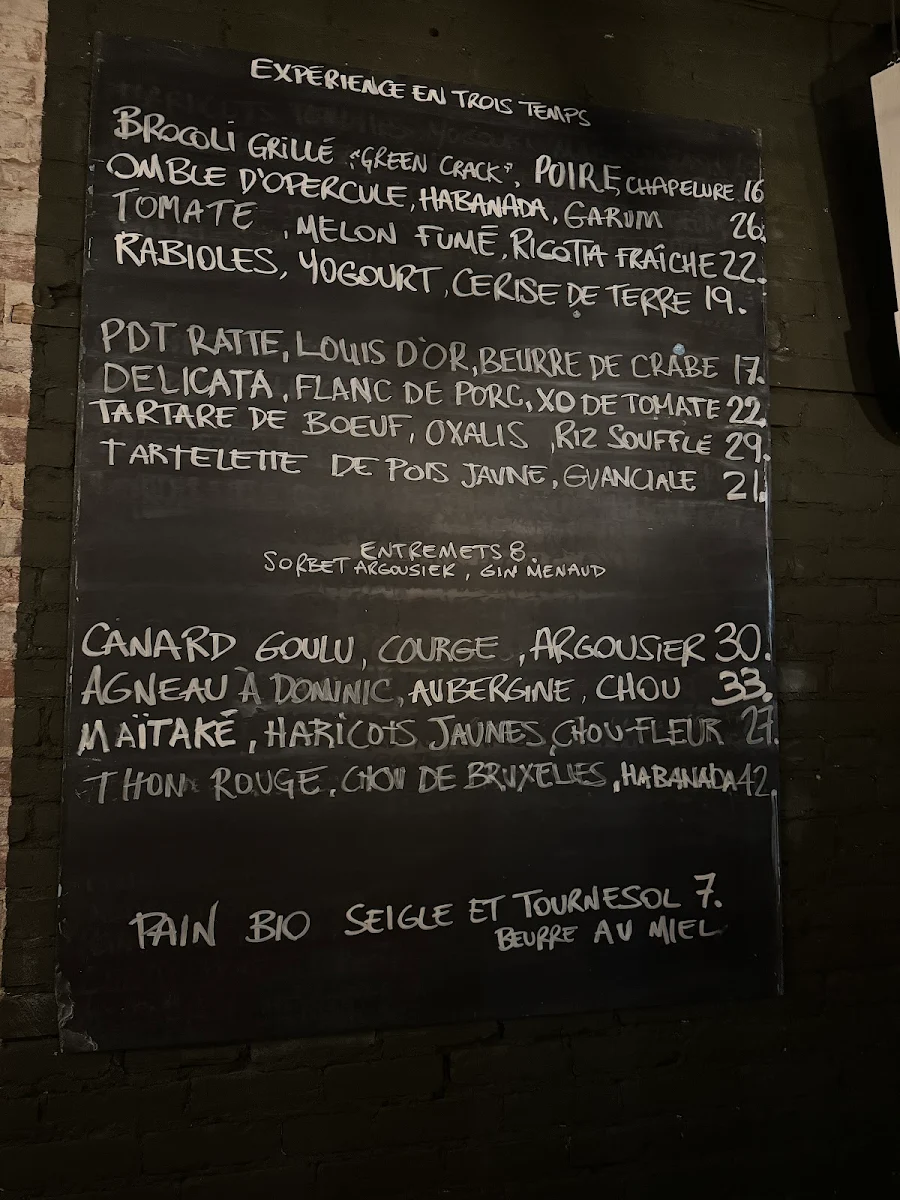 EXPÉRIENCE EN TROIS TEMPS
BROCOLI GRILLÉ "GREEN CRACK", POIRE, CHAPELURE 16
OMBLE D'OPERCULE, HABANADA, GARUM 26.
TOMATE, MELON FUMÉ, RICOTTA FRAÎCHE 22.
RABIOLES, YOGOURT, CERISE DE TERRE 19.
PDT RATTE, LOUIS D'OR, BEURRE DE CRABE 17.
DELICATA, FLANC DE PORC, XO DE TOMATE 22.
TARTARE DE BOEUF, OXALIS, RIZ SOUFFLÉ 29.
TARTELETTE DE POIS JAUNE, GUANCIALE 21.
ENTREMETS 8.
SORBET ARGOUSIER, GIN MENAUD
CANARD GOULU, COURGE, ARGOUSIER 30.
AGNEAU À DOMINIC, AUBERGINE, CHOU 33.
MAÏTAKÉ, HARICOTS JAUNES, CHOU-FLEUR 27.
THON ROUGE, CHOU DE BRUXELLES, HABANADA 42.
PAIN BIO SEIGLE ET TOURNESOL 7.
BEURRE AU MIEL